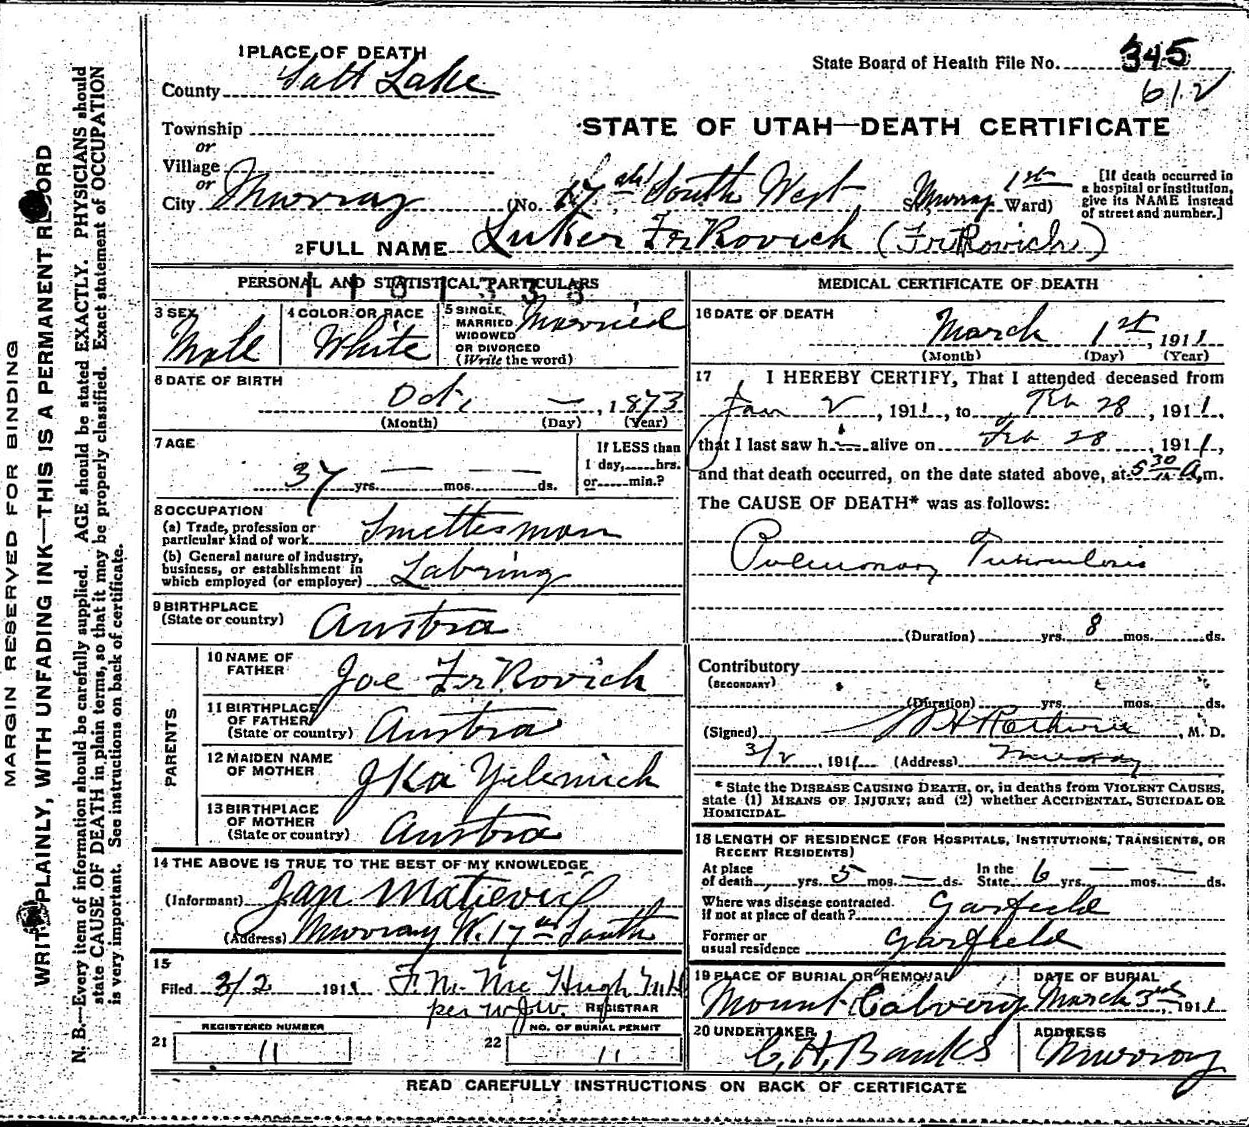 MARGIN RESERVED FOR BINDING
WRITE PLAINLY, WITH UNFADING INK—THIS IS A PERMANENT RECORD
N. B.—Every item of information should be carefully supplied. AGE should be stated EXACTLY. PHYSICIANS should
state CAUSE OF DEATH in plain terms, so that it may be properly classified. Exact statement of OCCUPATION
is very important. See instructions on back of certificate.
1 PLACE OF DEATH
County Salt Lake
Township
or
Village
or
City Murray
State Board of Health File No. 345
612
STATE OF UTAH—DEATH CERTIFICATE
(No. 17th South West St., Murray 1st Ward)
[If death occurred in
a hospital or institution,
give its NAME instead
of street and number.]
2 FULL NAME Luker FrKovich (FrKovich)
PERSONAL AND STATISTICAL PARTICULARS
3 SEX Male
4 COLOR OR RACE White
5 SINGLE, MARRIED, WIDOWED OR DIVORCED (Write the word) Married
6 DATE OF BIRTH
Oct. — , 1873
(Month) (Day) (Year)
7 AGE
37 yrs. — mos. — ds.
If LESS than
1 day, hrs.
or min.?
8 OCCUPATION
(a) Trade, profession or
particular kind of work Smelterman
(b) General nature of industry,
business, or establishment in
which employed (or employer) Labring
9 BIRTHPLACE
(State or country) Austra
PARENTS
10 NAME OF
FATHER Joe FrKovich
11 BIRTHPLACE
OF FATHER
(State or country) Austra
12 MAIDEN NAME
OF MOTHER JKa
13 BIRTHPLACE
OF MOTHER
(State or country) Austra
14 THE ABOVE IS TRUE TO THE BEST OF MY KNOWLEDGE
(Informant) Jan
(Address) Murray W. 17th South
15
Filed 3/2 1911 F. M. Mc Hugh M.D.
per W.J.W. REGISTRAR
REGISTERED NUMBER
21 11
NO. OF BURIAL PERMIT
22 11
MEDICAL CERTIFICATE OF DEATH
16 DATE OF DEATH
March 1st, 1911
(Month) (Day) (Year)
17 I HEREBY CERTIFY, That I attended deceased from
Jan 2, 1911, to Feb 28, 1911,
that I last saw h alive on Feb 28, 1911,
and that death occurred, on the date stated above, at 5 30 A.m.
The CAUSE OF DEATH* was as follows:
Pulmonary Tuberculosis
(Duration) yrs. 8 mos. ds.
Contributory
(SECONDARY)
(Duration) yrs. mos. ds.
(Signed) , M. D.
3/2, 1911 (Address) Murray
* State the DISEASE CAUSING DEATH, or, in deaths from VIOLENT CAUSES,
state (1) MEANS OF INJURY; and (2) whether ACCIDENTAL, SUICIDAL OR
HOMICIDAL.
18 LENGTH OF RESIDENCE (FOR HOSPITALS, INSTITUTIONS, TRANSIENTS, OR
RECENT RESIDENTS)
At place
of death yrs. 5 mos. — ds. In the
State 6 yrs. — mos. — ds.
Where was disease contracted
if not at place of death? Garfield
Former or
usual residence Garfield
19 PLACE OF BURIAL OR REMOVAL
Mount Calvery
DATE OF BURIAL
March 3rd, 1911
20 UNDERTAKER
C. H. Banks
ADDRESS
Murray
READ CAREFULLY INSTRUCTIONS ON BACK OF CERTIFICATE